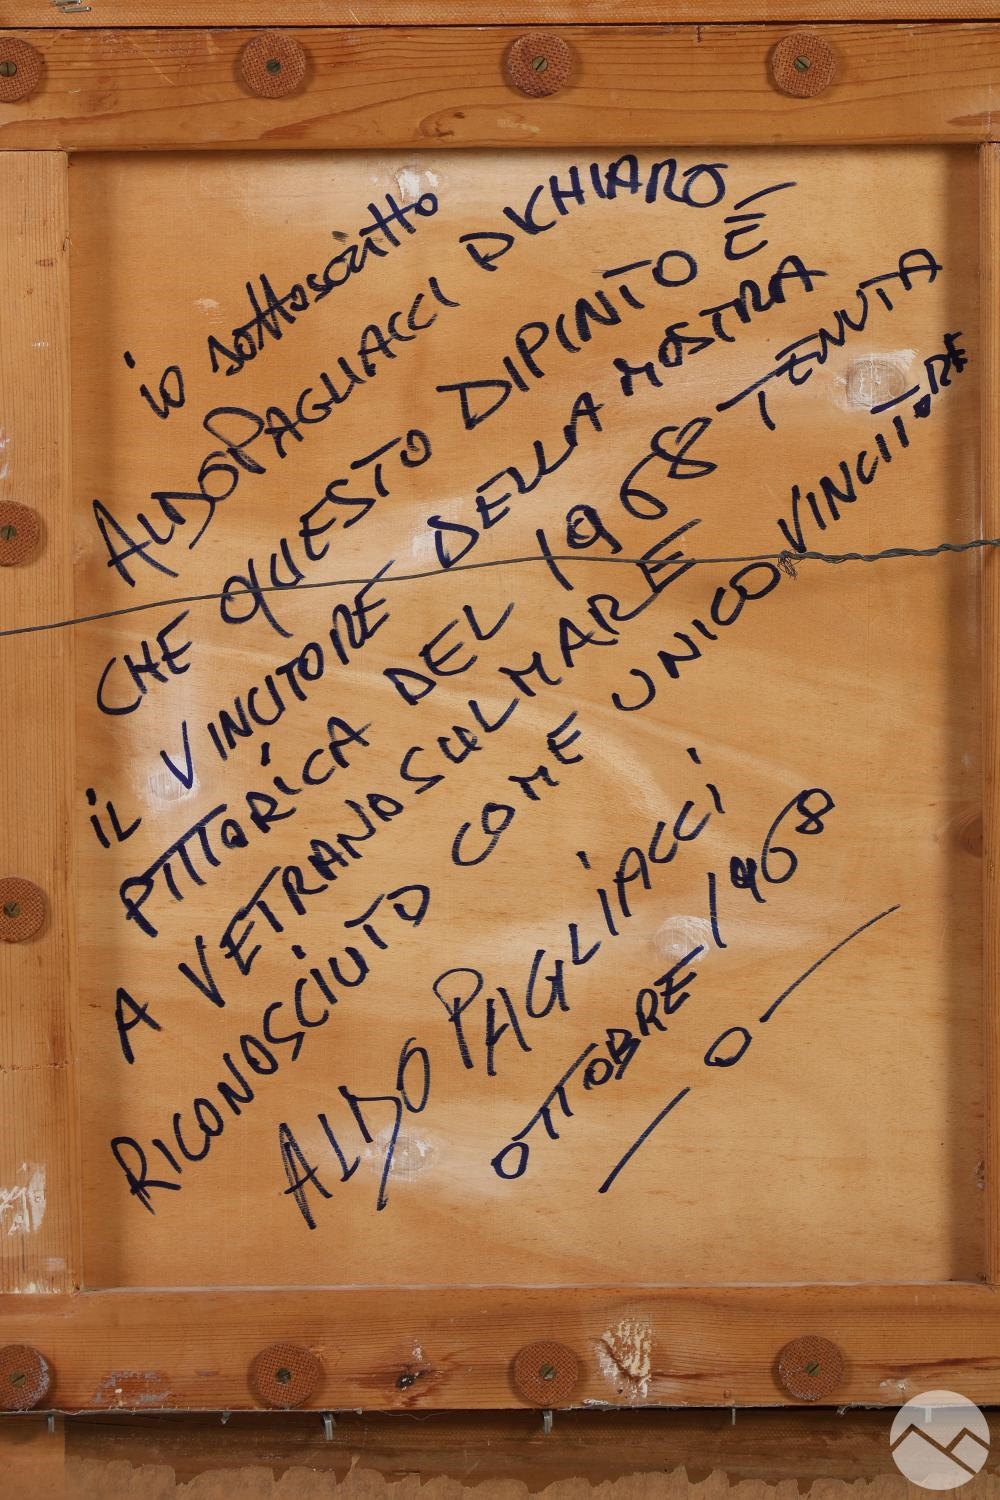 io sottoscritto
ALDO PAGLIACCI DICHIARO
CHE QUESTO DIPINTO É
IL VINCITORE DELLA MOSTRA
PITTORICA DEL 1968 TENUTA
A VETRANO SUL MARE
RICONOSCIUTO COME UNICO VINCITORE
ALDO PAGLIACCI
OTTOBRE / 1968